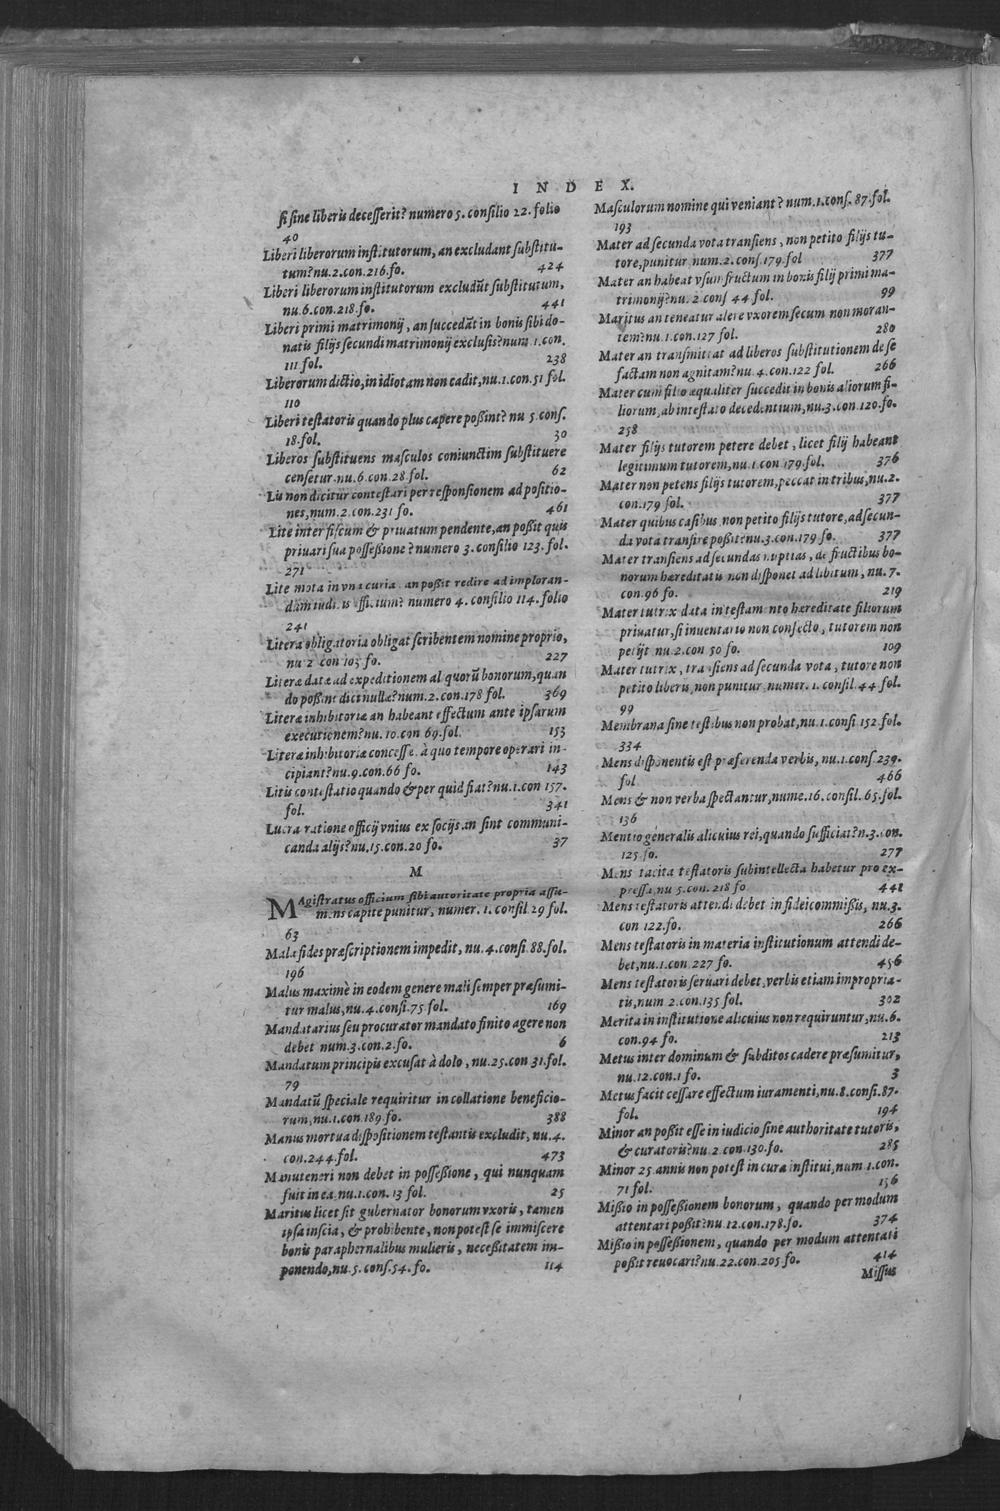 INDEX.
si sine liberis decesserit? numero 5. consilio 22. folio
40
Liberi liberorum institutorum, an excludant substitu-
tum? nu. 2. con. 216. fo. 424
Liberi liberorum institutorum excludūt substitutum,
nu. 6. con. 218. fo. 441
Liberi primi matrimonij, an succedāt in bonis sibi do-
natis filijs secundi matrimonij exclusis? num. 1. con.
111. fol. 238
Liberorum dictio, in idiotam non cadit, nu. 1. con. 51 fol.
110
Liberi testatoris quando plus capere poßint? nu 5. cons.
18. fol. 30
Liberos substituens masculos coniunctim substituere
censetur. nu. 6. con. 28. fol. 62
Lis non dicitur contestari per responsionem ad positio-
nes, num. 2. con. 231 fo. 461
Lite inter fiscum & priuatum pendente, an poßit quis
priuari sua possessione? numero 3. consilio 123. fol.
271
Lite mota in vna curia, an poßit redire ad imploran-
dum iudi is officium? numero 4. consilio 114. folio
241
Litera obligatoria obligat scribentem nomine proprio,
nu 2 con 103 fo. 227
Literæ datæ ad expeditionem al quorū bonorum, quan
do poßint dici nullæ? num. 2. con. 178 fol. 369
Literæ inhibitoriæ an habeant effectum ante ipsarum
executionem? nu. 10. con 69. fol. 153
Literæ inhibitoriæ concessæ, à quo tempore operari in-
cipiant? nu. 9. con. 66 fo. 143
Litis contestatio quando & per quid fiat? nu. 1. con 157.
fol. 341
Lucra ratione officij vnius ex socijs an sint communi-
canda alijs? nu. 15. con. 20 fo. 37
M
MAgistratus officium sibi autoritate propria assu-
mens capite punitur, numer. 1. consil. 29 fol.
63
Mala fides præscriptionem impedit, nu. 4. consi. 88. fol.
196
Malus maximè in eodem genere mali semper præsumi-
tur malus, nu. 4. consi. 75. fol. 169
Mandatarius seu procurator mandato finito agere non
debet num. 3. con. 2. fo. 6
Mandatum principis excusat à dolo, nu. 25. con 31. fol.
79
Mandatū speciale requiritur in collatione beneficio-
rum, nu. 1. con. 189. fo. 388
Manus mortua dispositionem testantis excludit, nu. 4.
con. 244. fol. 473
Manuteneri non debet in possessione, qui nunquam
fuit in ea, nu. 1. con. 13 fol. 25
Maritus licet sit gubernator bonorum vxoris, tamen
ipsa inscia, & prohibente, non potest se immiscere
bonis paraphernalibus mulieris, necessitatem im-
ponendo, nu. 5. cons. 54. fo. 114
Masculorum nomine qui veniant? num. 1. cons. 87. fol.
193
Mater ad secunda vota transiens, non petito filijs tu-
tore, punitur, num. 2. cons. 179. fol 377
Mater an habeat vsumfructum in bonis filij primi ma-
trimonij? nu. 2 cons 44 fol. 99
Maritus an teneatur alere vxorem secum non moran-
tem? nu. 1. con. 127 fol. 280
Mater an transmittat ad liberos substitutionem de se
factam non agnitam? nu. 4. con. 122 fol. 266
Mater cum filio æqualiter succedit in bonis aliorum fi-
liorum, ab intestato decedentium, nu. 3. con. 120. fo.
258
Mater filijs tutorem petere debet, licet filij habeant
legitimum tutorem, nu. 1. con 179. fol. 376
Mater non petens filijs tutorem, peccat in tribus, nu. 2.
con. 179 fol. 377
Mater quibus casibus, non petito filijs tutore, ad secun-
da vota transire poßit? nu. 3. con. 179 fo. 377
Mater transiens ad secundas nuptias, de fructibus bo-
norum hæreditatis non disponet ad libitum, nu. 7.
con. 96 fo. 219
Mater tutrix data in testamento hæreditate filiorum
priuatur, si inuentario non confecto, tutorem non
petijt nu. 2. con 50 fo. 109
Mater tutrix, transiens ad secunda vota, tutore non
petito liberis, non punitur, numer. 1. consil. 44 fol.
99
Membrana sine testibus non probat, nu. 1. consi 152. fol.
334
Mens disponentis est præferenda verbis, nu. 1. cons. 239.
fol 466
Mens & non verba spectantur, nume. 16. consil. 65. fol.
136
Mentio generalis alicuius rei, quando sufficiat? n. 3. con.
125. fo. 277
Mens tacita testatoris subintellecta habetur pro ex-
pressa, nu 5. con. 218 fo 441
Mens testatoris attendi debet in fideicommißis, nu. 3.
con 122. fo. 266
Mens testatoris in materia institutionum attendi de-
bet, nu. 1. con 227 fo. 456
Mens testatoris seruari debet, verbis etiam impropria-
tis, num 2. con. 135 fol. 302
Merita in institutione alicuius non requiruntur, nu. 6.
con. 94 fo. 213
Metus inter dominum & subditos cadere præsumitur,
nu. 12. con. 1 fo. 3
Metus facit cessare effectum iuramenti, nu. 8. consi. 87.
fol. 194
Minor an poßit esse in iudicio sine authoritate tutoris,
& curatoris? nu. 2. con. 130. fo. 285
Minor 25. annis non potest in cura institui, num 1. con.
71 fol. 156
Mißio in possessionem bonorum, quando per modum
attentari poßit? nu. 12. con. 178. fo. 374
Mißio in possessionem, quando per modum attentati
poßit reuocari? nu. 22. con. 205 fo. 414
Missus